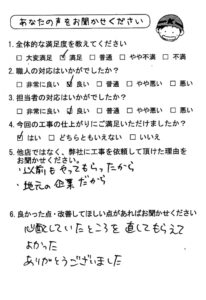 あなたの声をお聞かせください
1.全体的な満足度を教えてください
□大変満足 ☑満足 □普通 □やや不満 □不満
2.職人の対応はいかがでしたか?
□非常に良い ☑良い □普通 □やや悪い □悪い
3.担当者の対応はいかがでしたか?
□非常に良い ☑良い □普通 □やや悪い □悪い
4.今回の工事の仕上がりにご満足いただけましたか?
☑はい □どちらともいえない □いいえ
5.他店ではなく、弊社に工事を依頼して頂けた理由を
お聞かせください。
・以前もやってもらったから
・地元の企業だから
6.良かった点・改善してほしい点があればお聞かせください
心配していたところを直してもらえて
よかった
ありがとうございました